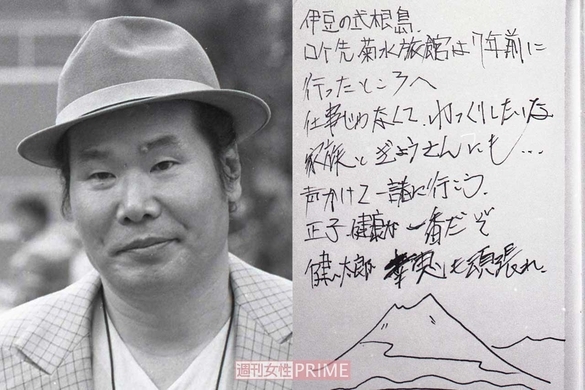 伊豆の式根島、
ロケ先 菊水旅館は7年前に
行ったところへ
仕事じゃなくて、ゆっくりしたいな
家族とぎょうさんにも…
声かけて一諸に行こう。
正子 健康が一番だぞ
健太郎 も頑張れ。
週刊女性PRIME